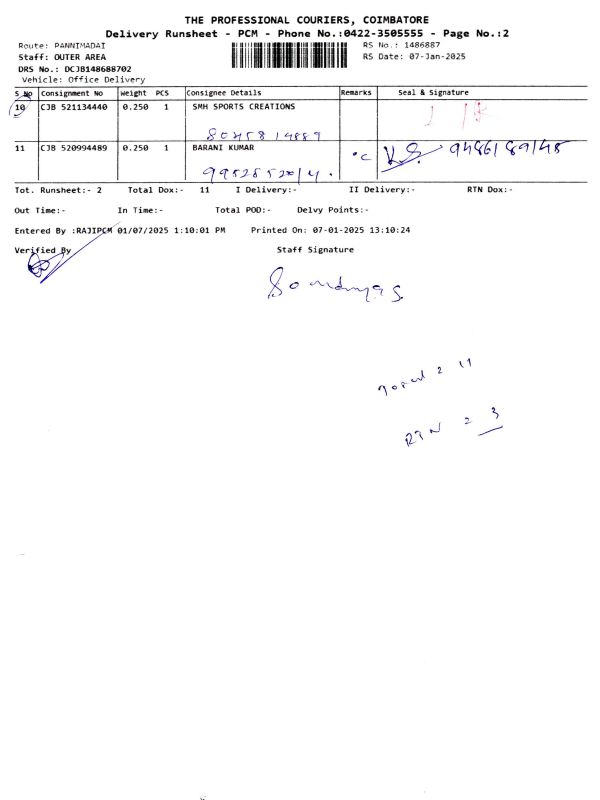 THE PROFESSIONAL COURIERS, COIMBATORE
Delivery Runsheet - PCM - Phone No.:0422-3505555 - Page No.:2
Route: PANNIMADAI
RS No.: 1486887
Staff: OUTER AREA
RS Date: 07-Jan-2025
DRS No.: DCJB148688702
Vehicle: Office Delivery
S No Consignment No Weight PCS Consignee Details Remarks Seal & Signature
10 CJB 521134440 0.250 1 SMH SPORTS CREATIONS
11 CJB 520994489 0.250 1 BARANI KUMAR
9486189145
Tot. Runsheet:- 2 Total Dox:- 11 I Delivery:- II Delivery:- RTN Dox:-
Out Time:- In Time:- Total POD:- Delvy Points:-
Entered By :RAJIPCM 01/07/2025 1:10:01 PM Printed On: 07-01-2025 13:10:24
Verified By Staff Signature
RTN 2 3